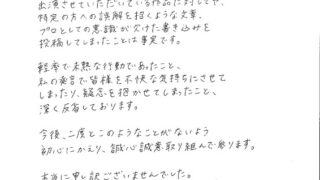 出演させていただいている作品に対してや、
特定の方への誤解を招くような文章、
プロとしての意識が欠けた書き込みを
投稿してしまったことは事実です。
軽率で未熟な行動であったこと、
私の発言で皆様を不快な気持ちにさせて
しまったり、疑念を抱かせてしまったこと、
深く反省しております。
今後、二度とこのようなことがないよう
初心にかえり、誠心誠意取り組んで参ります。
本当に申し訳ございませんでした。